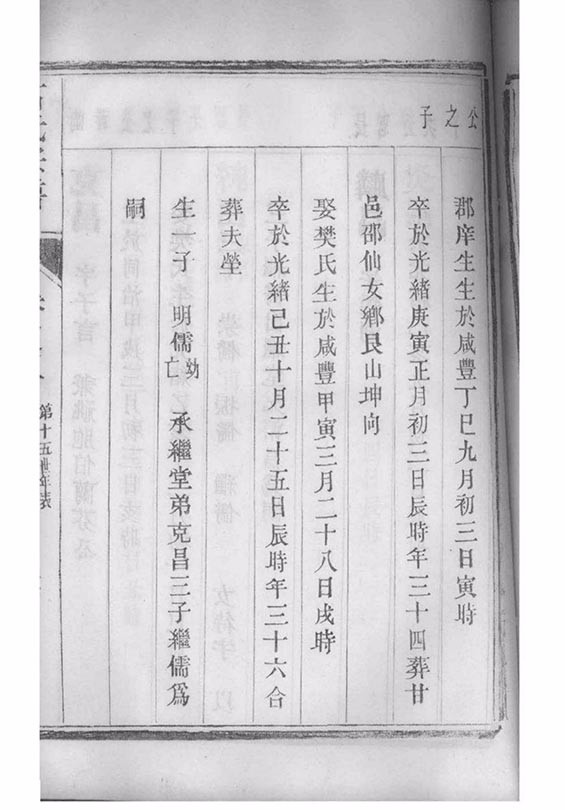 公之子
郡庠生生於咸豐丁巳九月初三日寅時
卒於光緒庚寅正月初三日辰時年三十四葬甘
邑邵仙女鄉艮山坤向
娶樊氏生於咸豐甲寅三月二十八日戌時
卒於光緒己丑十月二十五日辰時年三十六合
葬夫塋
生一子 明儒幼亡 承繼堂弟克昌三子繼儒爲
嗣
第十五世年表